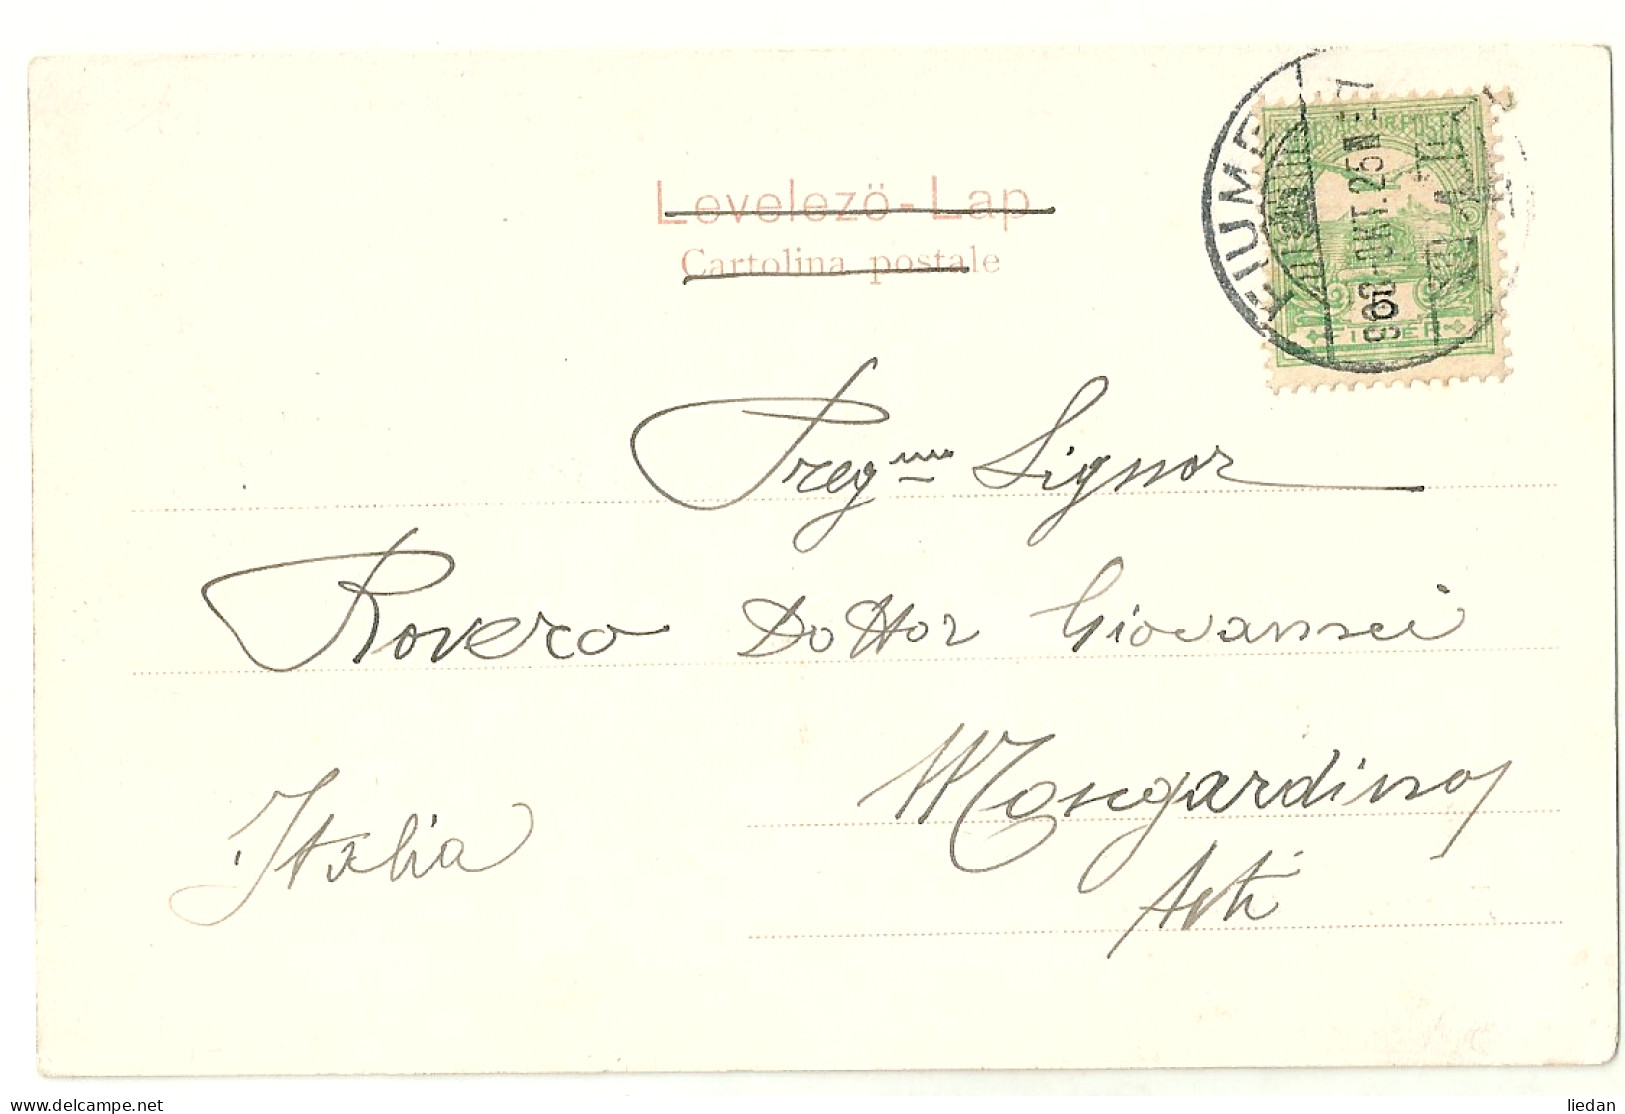 Levelező-Lap
Cartolina postale
FIUME
MAGYAR KIR. POSTA
OKT. 25
6
FILLER
Preg.mo Signor
Rovero Dottor Giovanni
Mongardino
Asti
Italia
www.delcampe.net
liedan